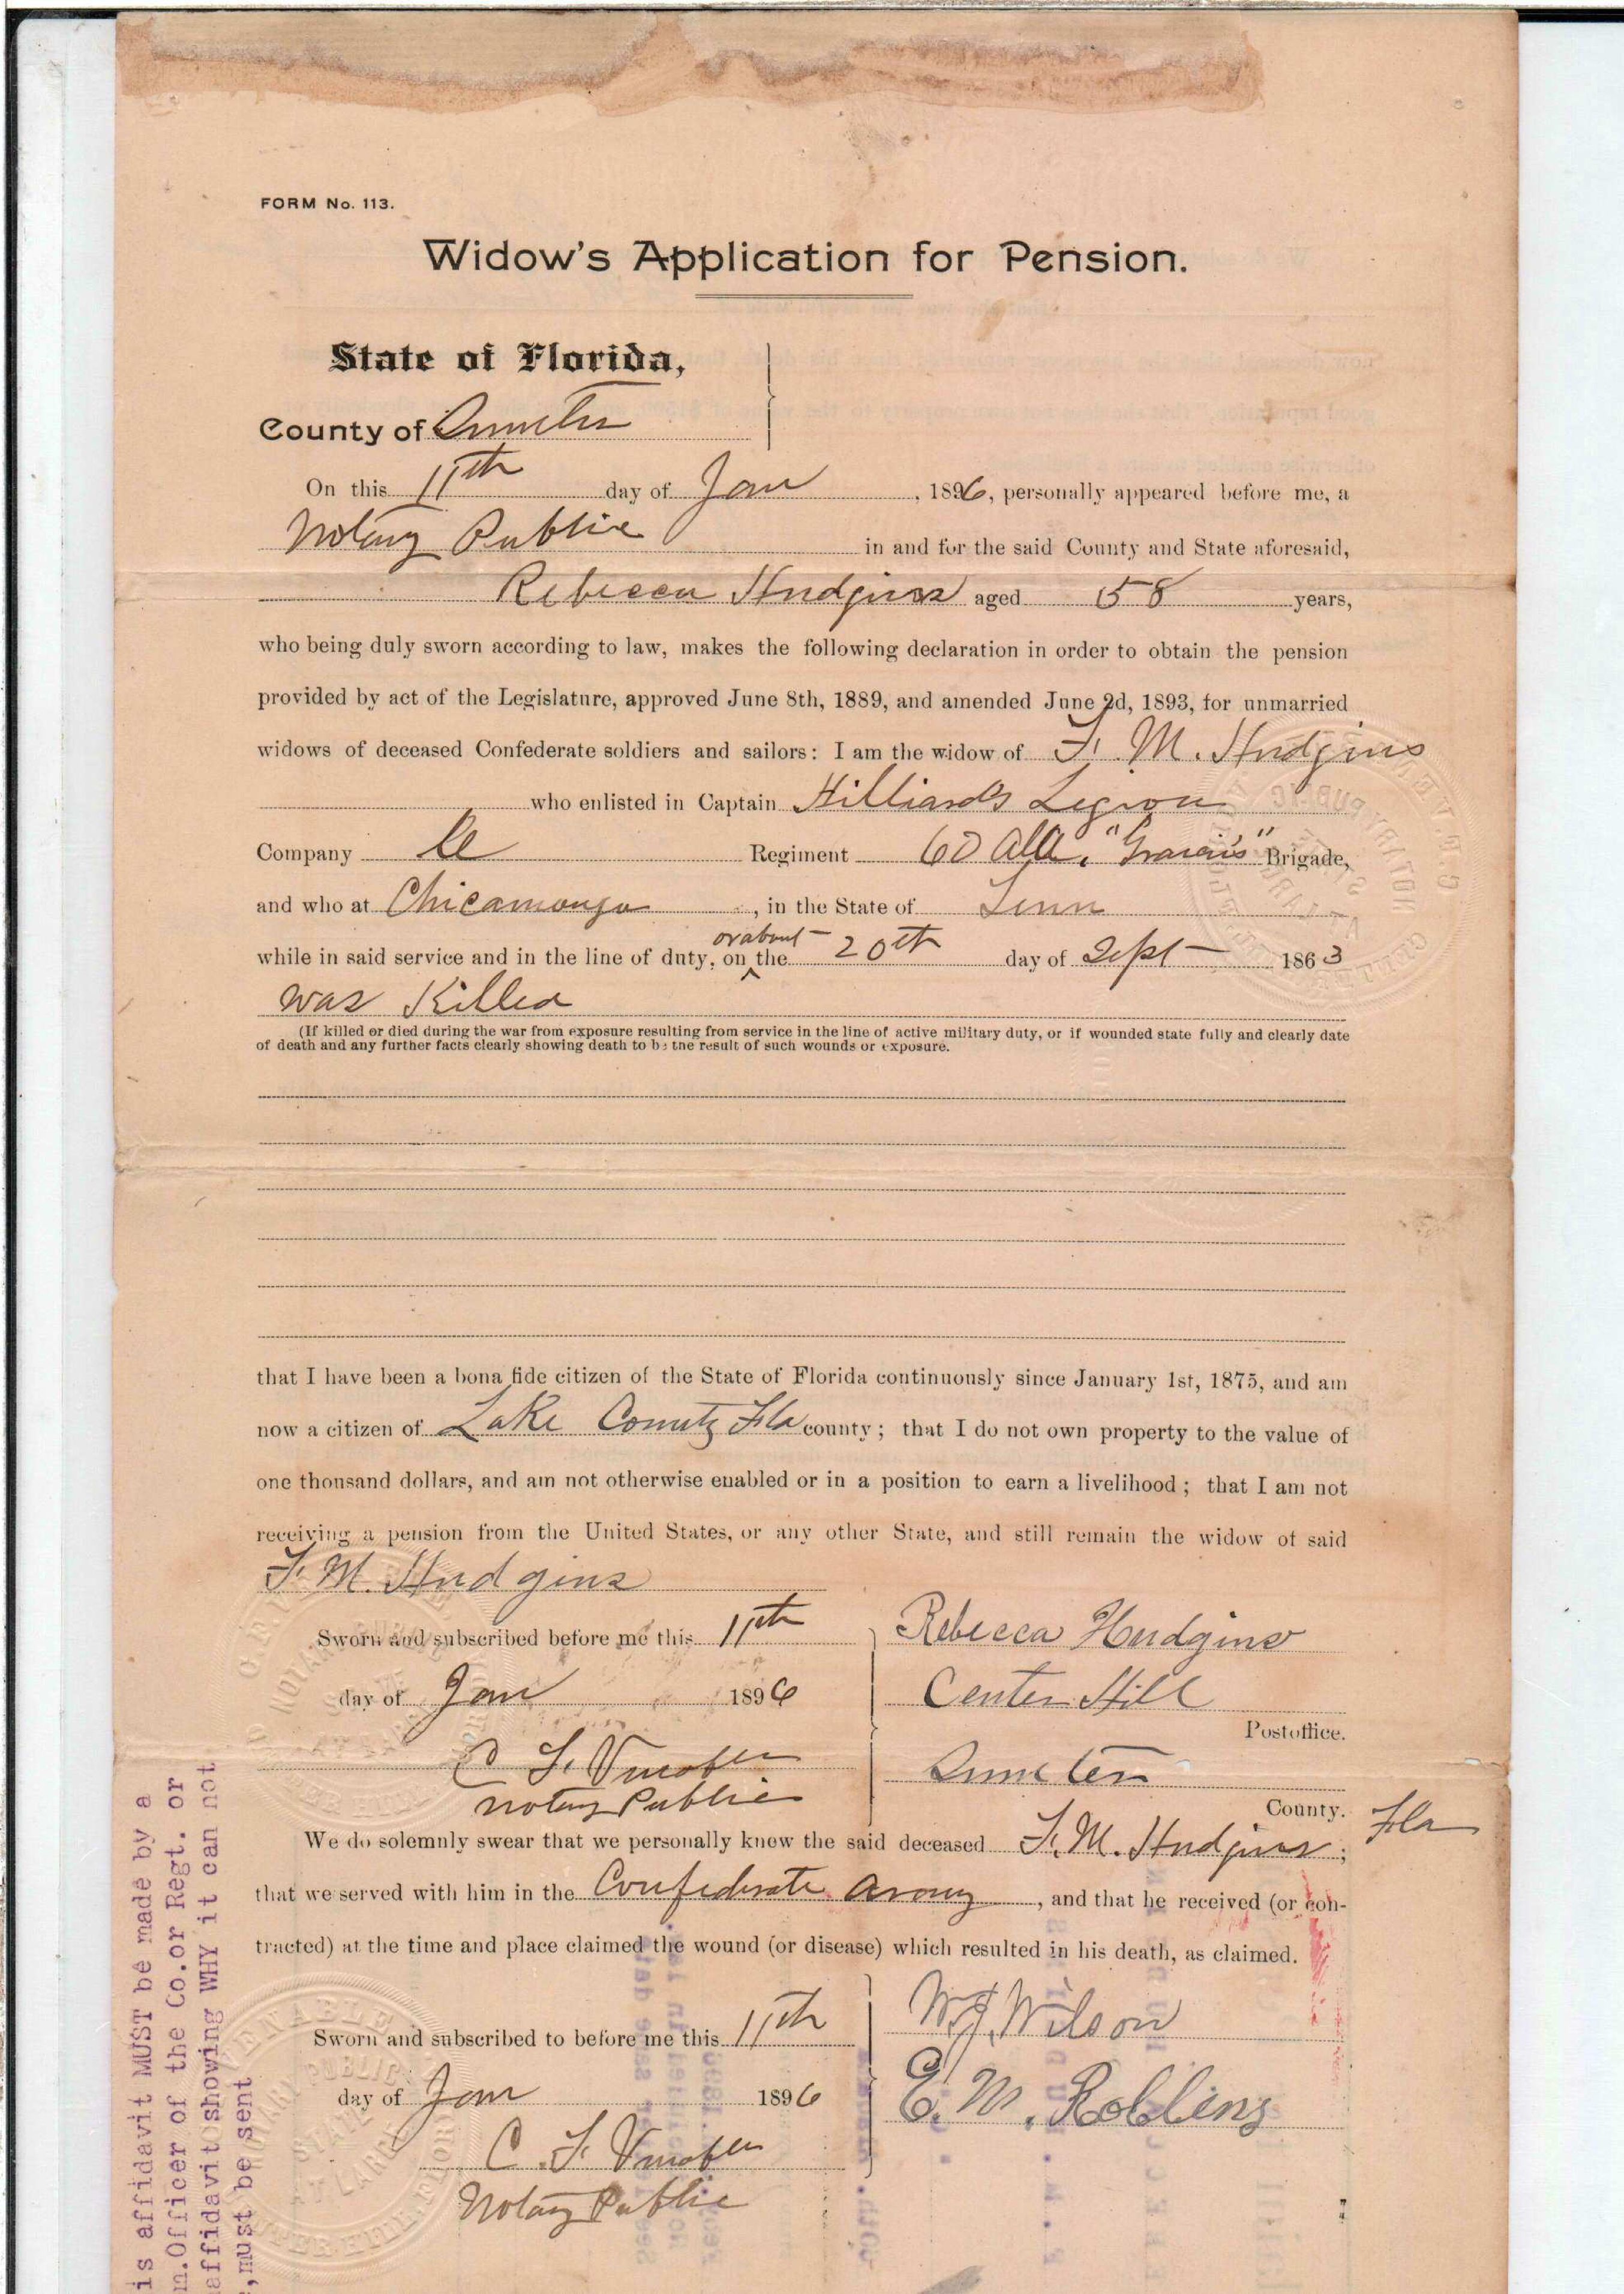 FORM No. 113.
Widow's Application for Pension.
State of Florida,
County of Sumter
On this 11th day of Jan, 1896, personally appeared before me, a
Notary Public in and for the said County and State aforesaid,
Rebecca Hudgins aged 58 years,
who being duly sworn according to law, makes the following declaration in order to obtain the pension
provided by act of the Legislature, approved June 8th, 1889, and amended June 2d, 1893, for unmarried
widows of deceased Confederate soldiers and sailors: I am the widow of F. M. Hudgins
who enlisted in Captain Hilliards Legion
Company Regiment 60 Ala, "Gracies" Brigade,
and who at Chicamouga, in the State of Tenn
while in said service and in the line of duty, on or about the 20th day of Sept 1863
was Killed
(If killed or died during the war from exposure resulting from service in the line of active military duty, or if wounded state fully and clearly date
of death and any further facts clearly showing death to be the result of such wounds or exposure.
that I have been a bona fide citizen of the State of Florida continuously since January 1st, 1875, and am
now a citizen of Lake County Fla county; that I do not own property to the value of
one thousand dollars, and am not otherwise enabled or in a position to earn a livelihood; that I am not
receiving a pension from the United States, or any other State, and still remain the widow of said
F. M. Hudgins
Sworn and subscribed before me this 11th
day of Jan 1896
C. F. Venable
Notary Public
Rebecca Hudgins
Center Hill
Postoffice.
Sumter
County. Fla
We do solemnly swear that we personally knew the said deceased F. M. Hudgins;
that we served with him in the Confederate Army, and that he received (or con-
tracted) at the time and place claimed the wound (or disease) which resulted in his death, as claimed.
Sworn and subscribed to before me this 11th
day of Jan 1896
C. F. Venable
Notary Public
W. J. Wilson
E. M. Robbins
is affidavit MUST be made by a
m.Officer of the Co.or Regt. or
affidavit showing WHY it can not
,must be sent